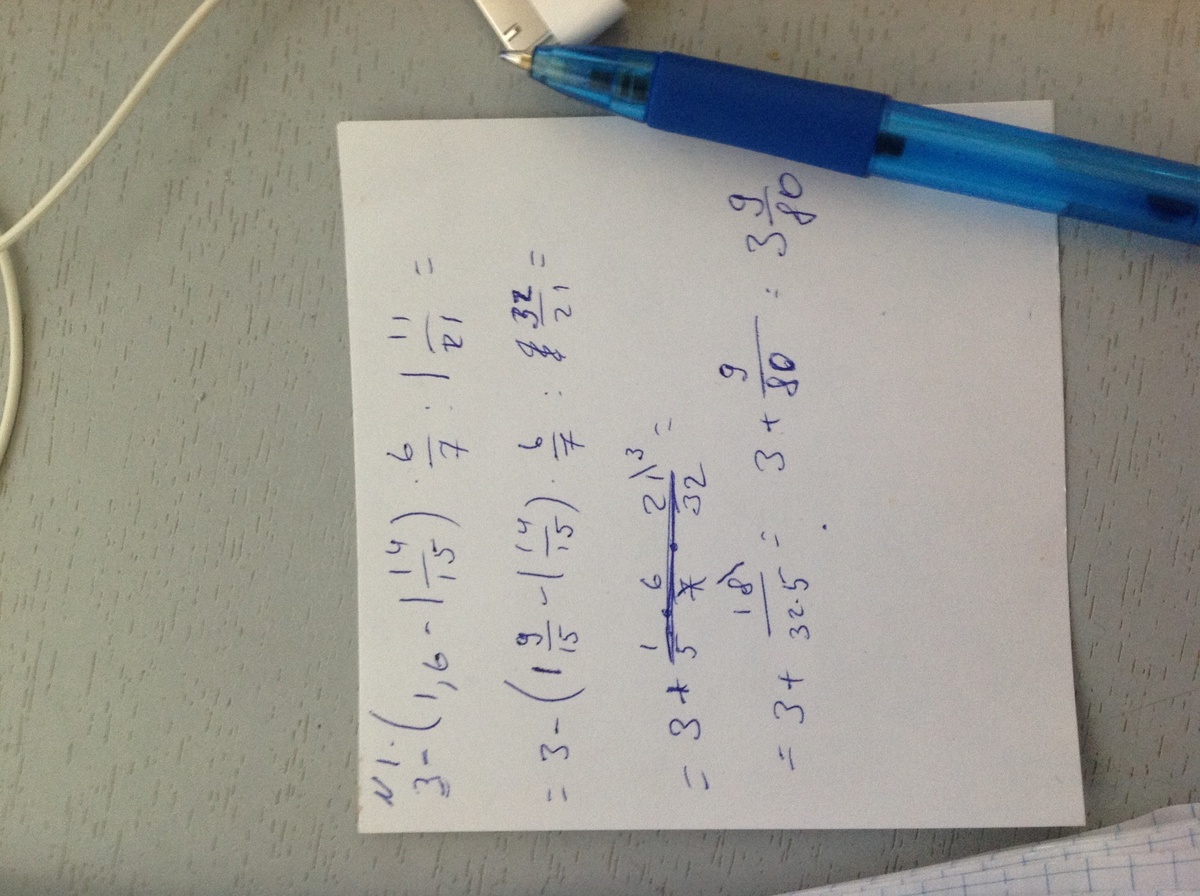 N1.
3-(1,6-1 14/15)·6/7:1 11/21=
=3-(1 9/15-1 14/15)·6/7:32/21=
=3+1/5·6/7·21/32 3=
=3+18/32·5=3+9/80=3 9/80